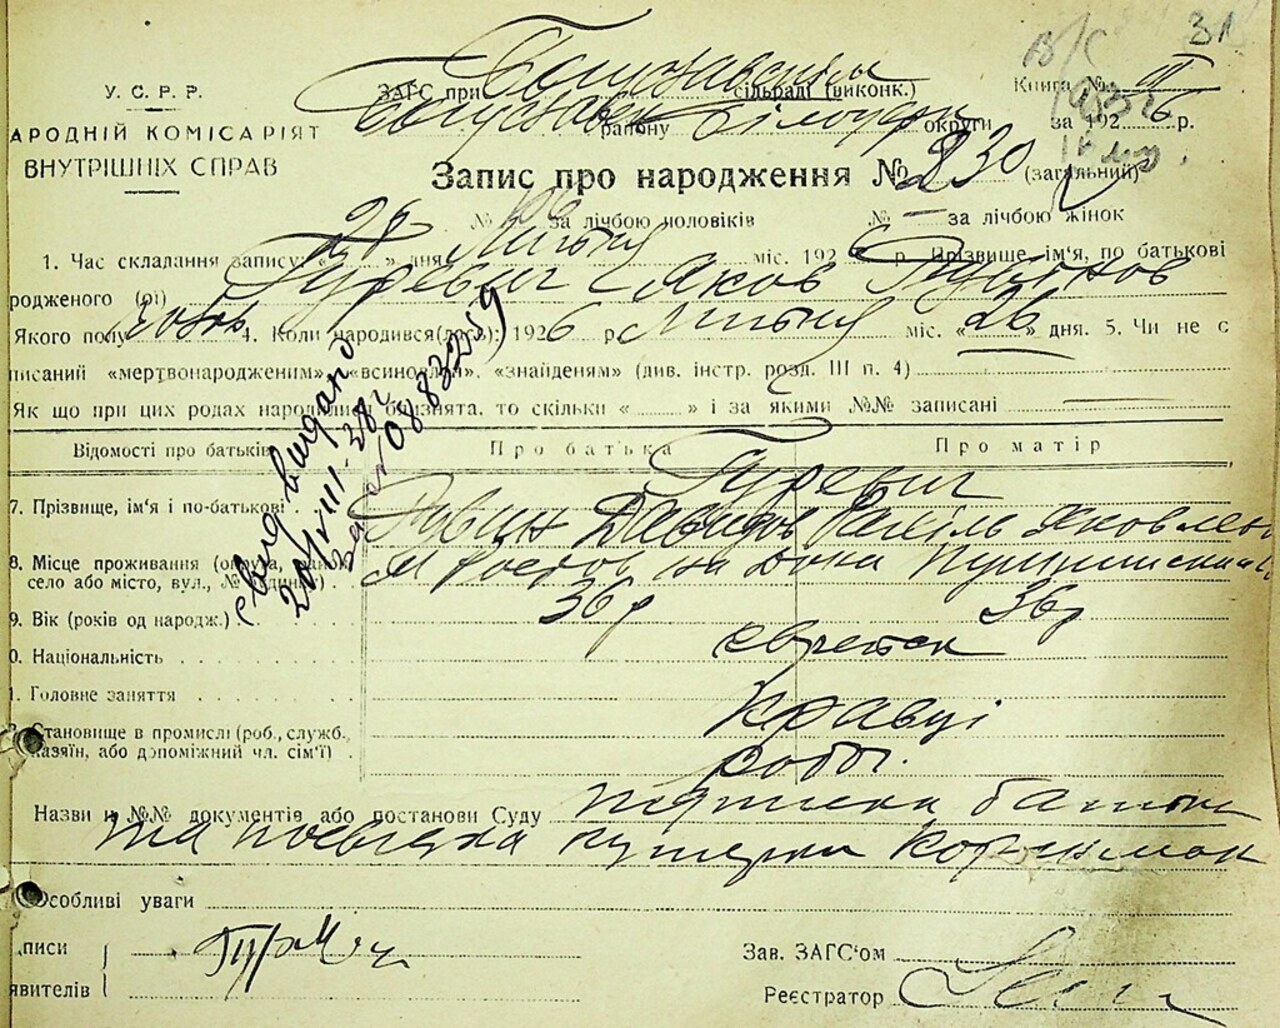 31
У. С. Р. Р.
АРОДНІЙ КОМІСАРІЯТ
ВНУТРІШНІХ СПРАВ
ЗАГС при Богуславськім сільраді (виконк.)
Книга № II
Богуславськ району Білоцерк округи за 1926 р.
Запис про народження № 230 (загальний)
№ за лічбою чоловіків № — за лічбою жінок
1. Час складання запису: «28» дня Липня міс. 1926 р. Прізвище, ім'я, по батькові
родженого (ої) Гуревич Яков Рувінов
Якого полу 4. Коли народився(лось): 1926 р. Липня міс. «26» дня. 5. Чи не є
писаний «мертвонародженим», «всиновлен», «знайденям» (див. інстр. розд. III п. 4)
Як що при цих родах народилися близнята, то скільки « » і за якими №№ записані
Відомості про батьків
Про батька
Про матір
Гуревич
7. Прізвище, ім'я і по-батькові
Рувин Давидов Рахіль Яковлев
8. Місце проживання (округа, район, село або місто, вул., № будинку)
м Ростов на Дона Пушкинская
9. Вік (років од народж.) 36 р 36 р
0. Національність евреиск
1. Головне заняття кравці
2. Становище в промислі (роб., служб., хазяїн, або допоміжний чл. сім'ї) робі.
свид выдано
20/VIII-28 г
за № 0883259
Назви и №№ документів або постанови Суду підписка батьки
та посвідка
Особливі уваги
писи
явителів
Зав. ЗАГС'ом
Реєстратор